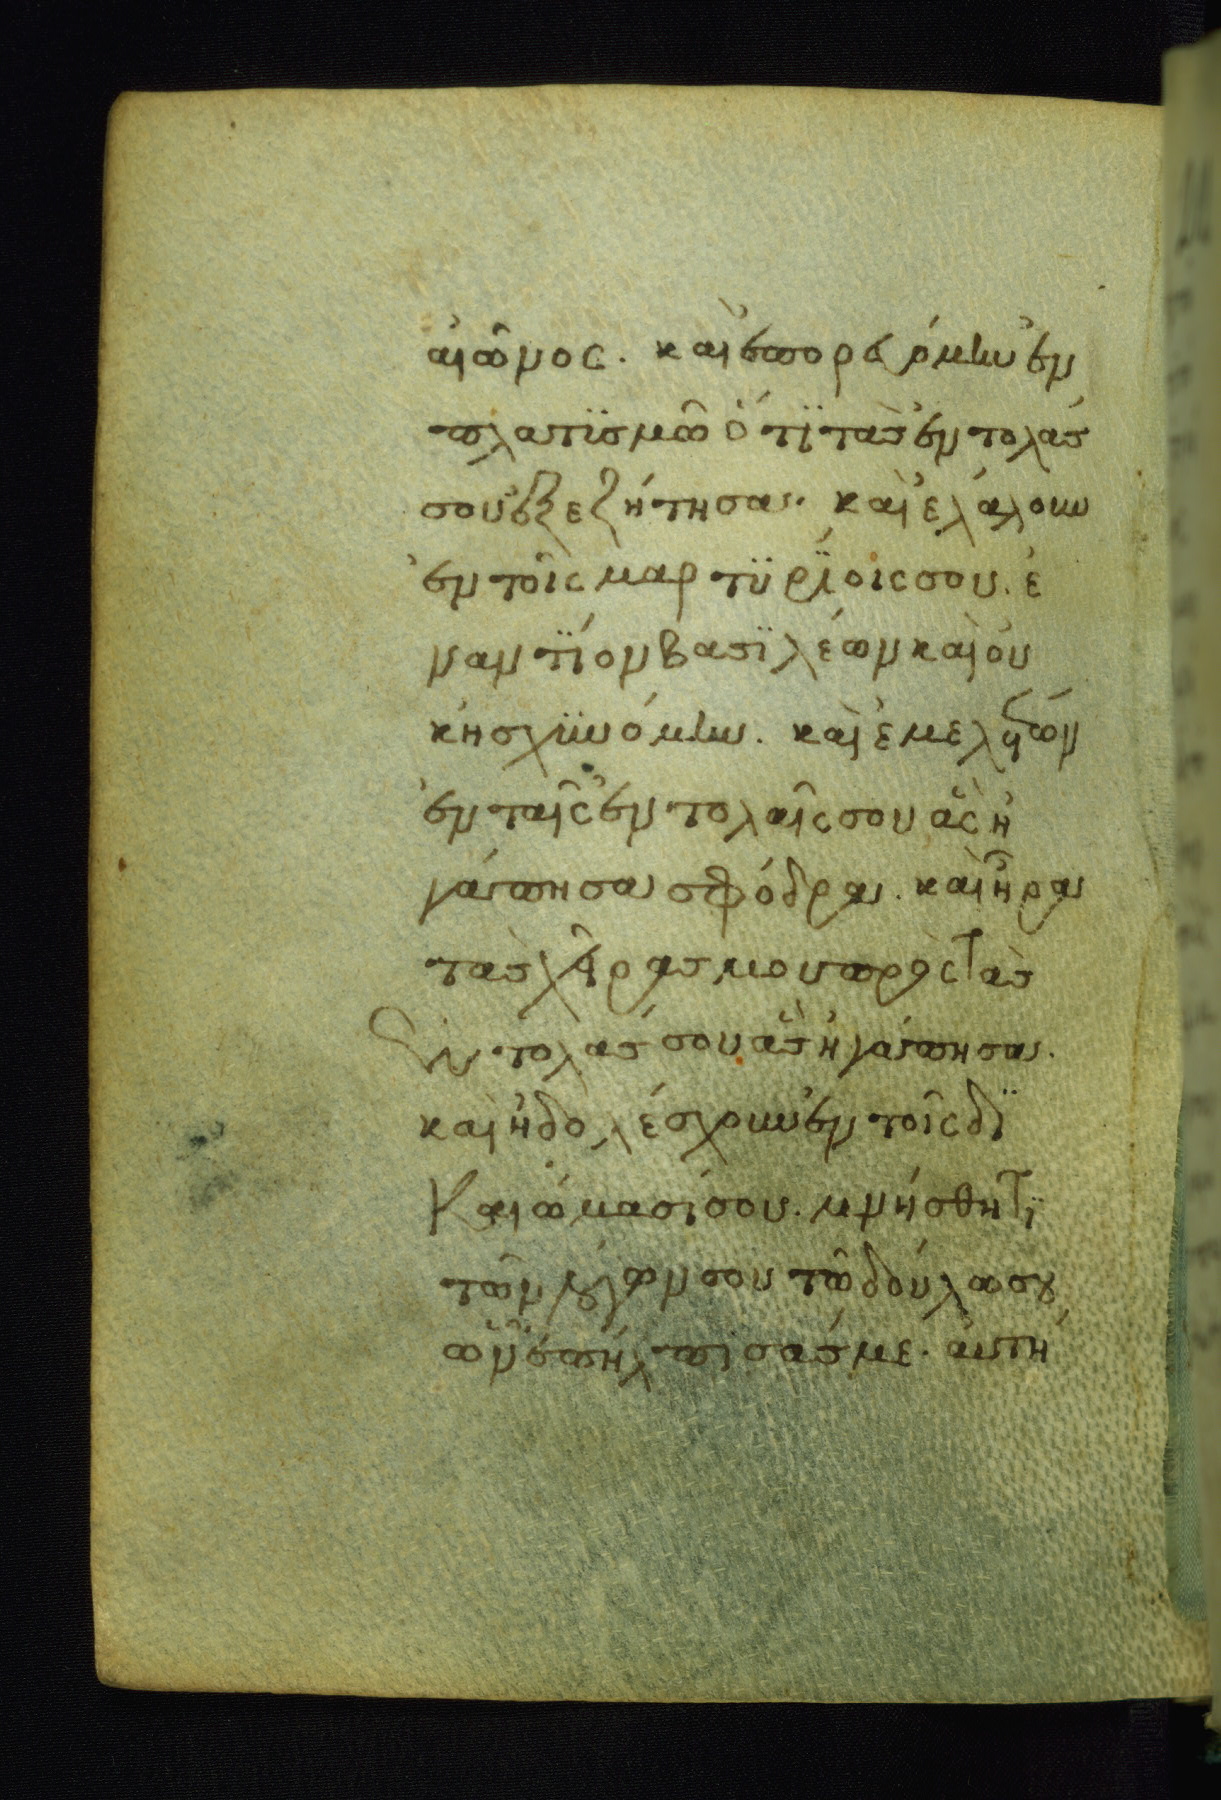 αἰῶνος. καὶ ἐπορευόμην ἐν
πλατϊσμῶ ὅτϊ τὰς ἐντολάς
σου ἐξεζήτησα. καὶ ἐλάλουν
ἐν τοῖς μαρτϋρΐοις σου. ἐ
ναντΐον βασϊλέων καὶ οὐ
κ ἠσχϋνόμην. καὶ ἐμελέτων
ἐν ταῖς ἐντολαῖς σου ἃς ἠ
γάπησα σφόδρα. καὶ ἦρα
τὰς χεῖρας μου πρὸς τὰς
ἐντολάς σου ἃς ἠγάπησα.
καὶ ἠδολέσχουν ἐν τοῖς δϊ
καιώμασί σου. μνήσθητϊ
τῶν λόγων σου τῶ δούλω σου
ὧν ἐπήλπισάς με. αὕτη